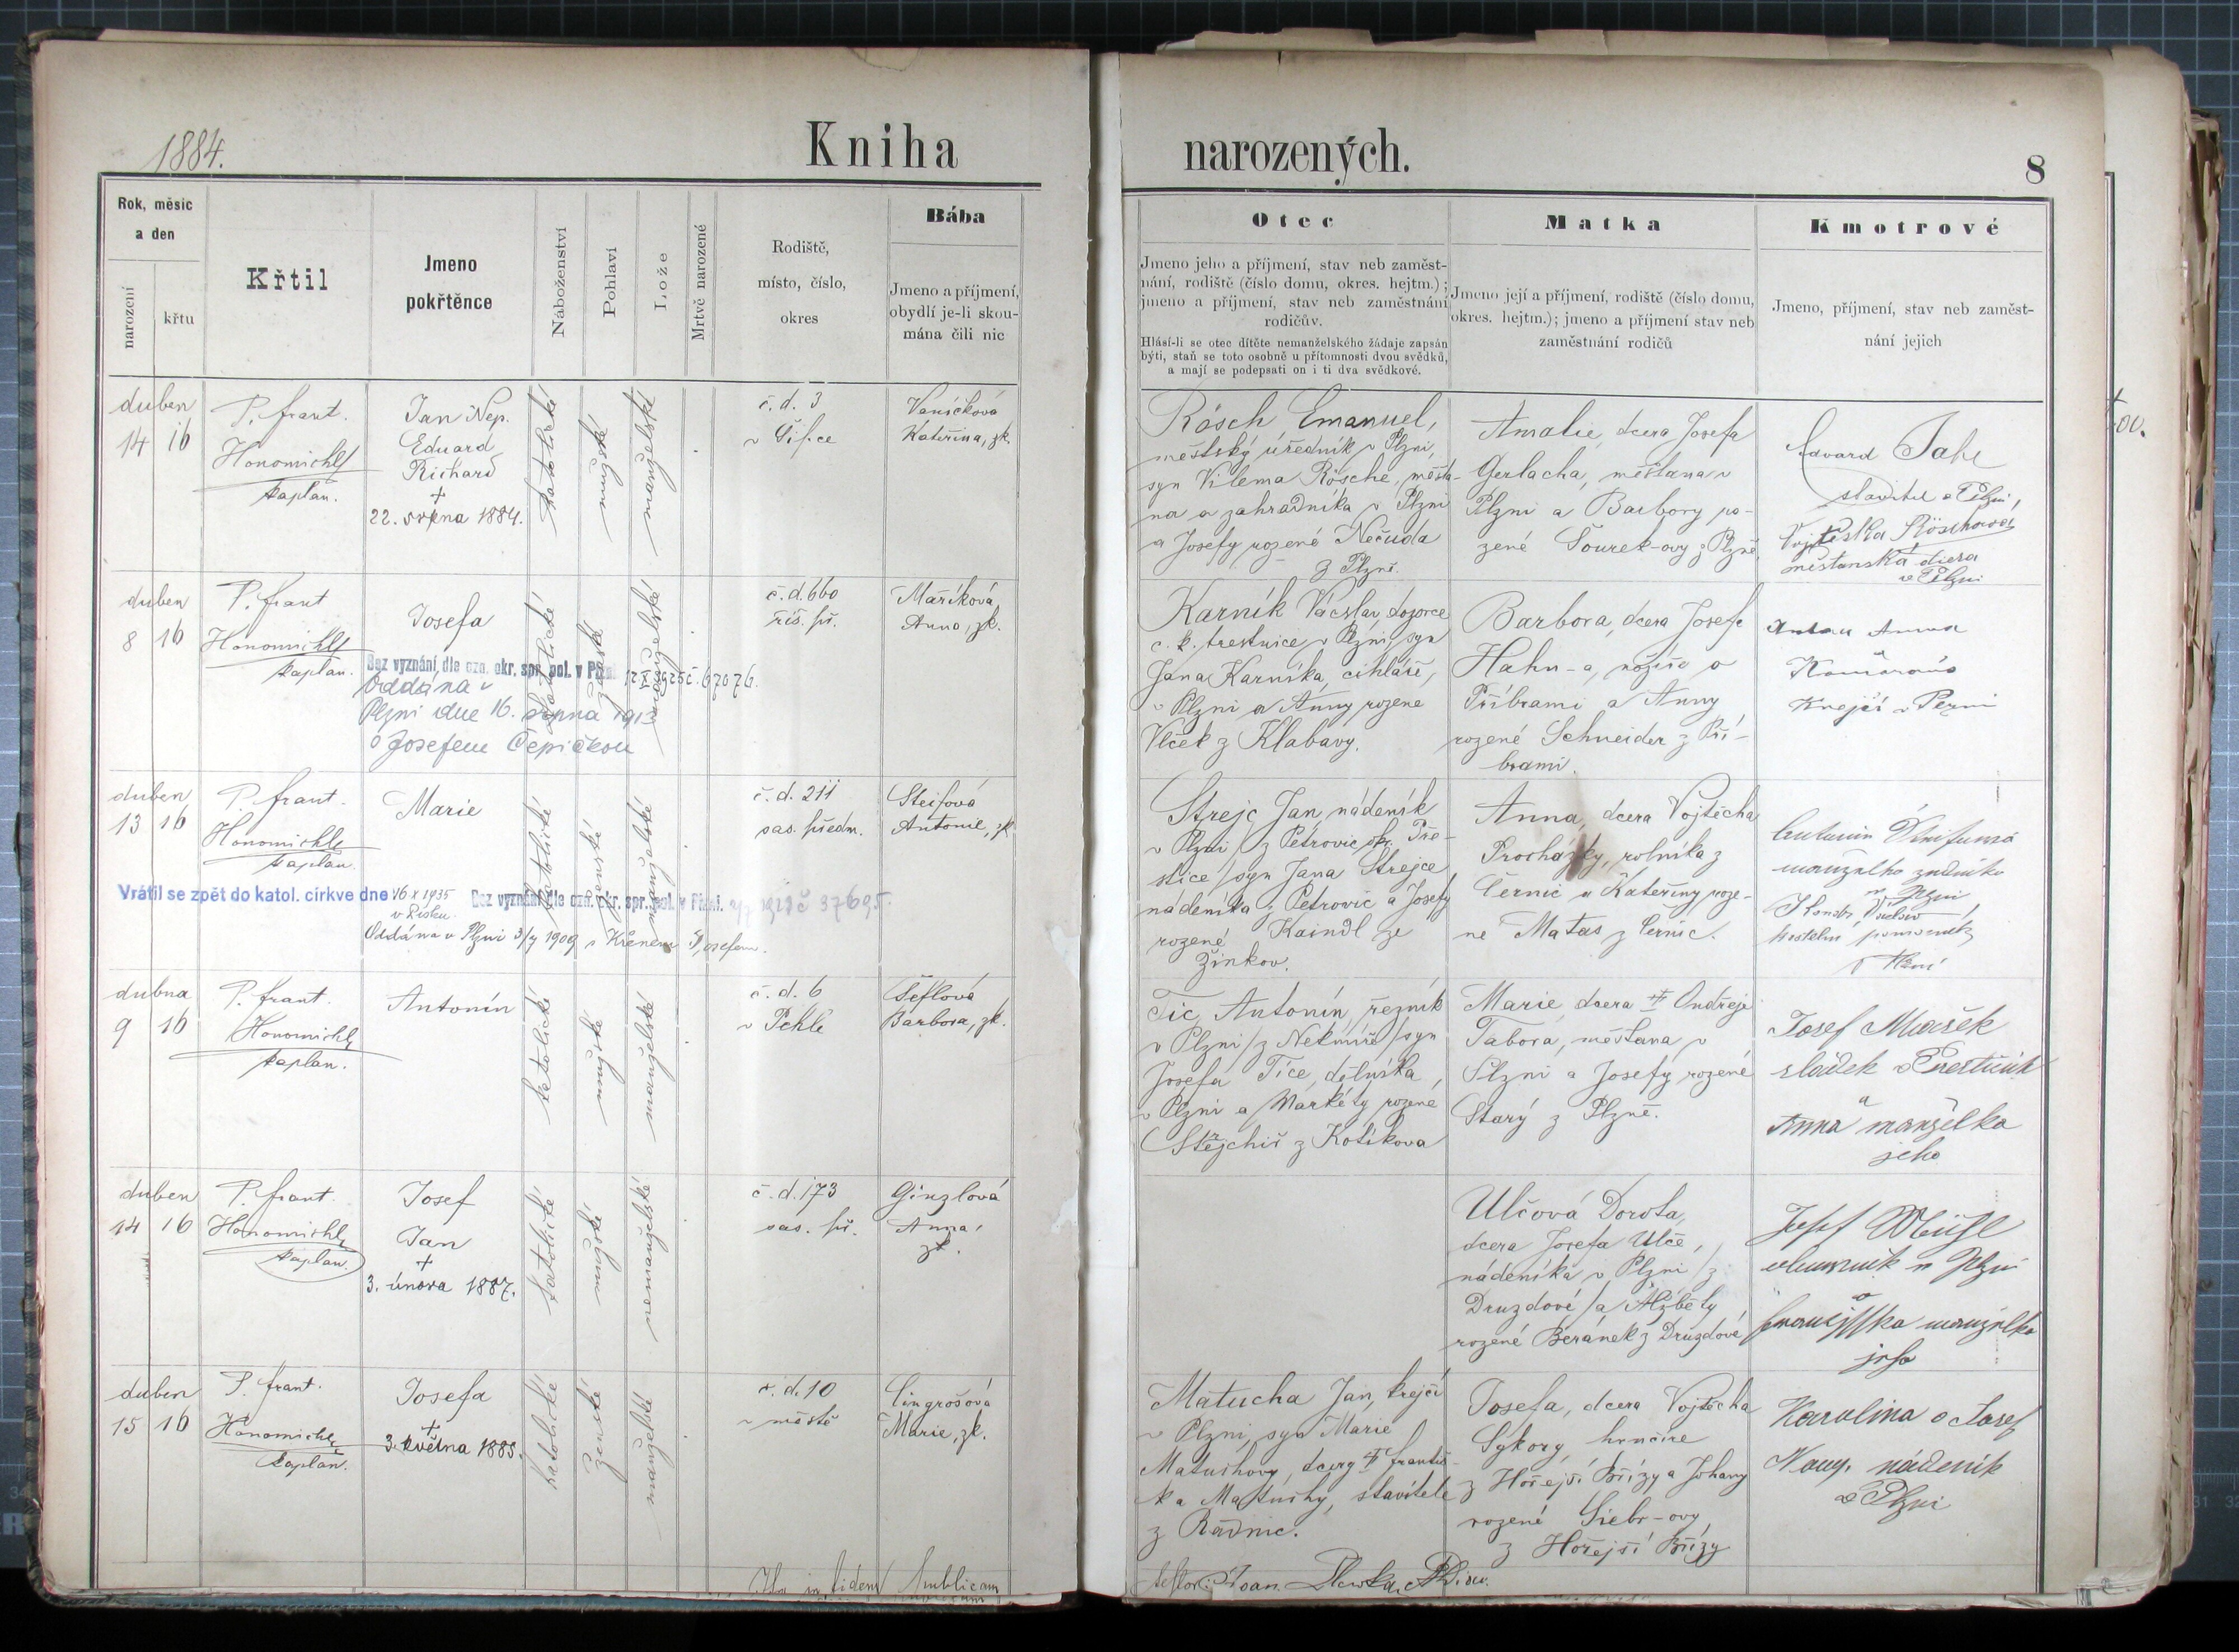 1884.
Kniha narozených.
8
Rok, měsíc
a den
narození
křtu
Křtil
Jmeno
pokřtěnce
Náboženství
Pohlaví
Lože
Mrtvě narozené
Rodiště,
místo, číslo,
okres
Bába
Jmeno a příjmení,
obydlí je-li skou-
mána čili nic
Otec
Jmeno jeho a příjmení, stav neb zaměst-
nání, rodiště (číslo domu, okres. hejtm.);
jmeno a příjmení, stav neb zaměstnání
rodičův.
Hlásí-li se otec dítěte nemanželského žádaje zapsán
býti, staň se toto osobně u přítomnosti dvou svědků,
a mají se podepsati on i ti dva svědkové.
Matka
Jmeno její a příjmení, rodiště (číslo domu,
okres. hejtm.); jmeno a příjmení stav neb
zaměstnání rodičů
Kmotrové
Jmeno, příjmení, stav neb zaměst-
nání jejich
duben
14 16
P. frant.
Honomichl
kaplan.
Jan Nep.
Eduard
Richard
†
22. srpna 1884.
katolické
mužské
manželské
č. d. 3
v
Vaníčková
Kateřina, zk.
Rösch Emanuel,
městský úředník v Plzni,
syn Vilema Rösche, měšťa-
na a zahradníka v Plzni
a Josefy rozené Nečuda
z Plzně.
Amalie, dcera Josefa
Gerlacha, měšťana v
Plzni a Barbory ro-
zené Tourek-ovy z Plzně
Edvard
stavitel v Plzni,
Vojteška Röschova
měšťanská dcera
v Plzni
duben
8 16
P. frant
Honomichl
kaplan.
Josefa
katolické
ženské
manželské
č. d. 660
říš. př.
Maříková
Anna, zk.
Bez vyznání, dle ozn. okr. spr. pol. v Plzni 1925 č. 67076.
Oddána v
Plzni dne 16. srpna 1913
s Josefem Čepičkou
Karník Václav, dozorce
c. k. trestnice v Plzni, syn
Jana Karníka, cihláře,
v Plzni a Anny rozené
Vlček z Klabavy.
Barbora, dcera Josefa
Hahn-a, nožíře v
Příbrami a Anny
rozené Schneider z Pří-
brami.
Anna
Krejčí v
duben
13 16
P. frant.
Honomichl
kaplan.
Marie
katolické
ženské
manželské
č. d. 211
sas. předm.
Steifová
Antonie, zk.
Vrátil se zpět do katol. církve dne 16 X 1935
v Písku.
Bez vyznání dle ozn. okr. spr. pol. v Plzni. č 37695.
Oddána v Plzni 3/7 1909 s Křenem Josefem.
Strejc Jan, nádeník
v Plzni /z Petrovic okr. Pře-
štice/ syn Jana Strejce
nádeníka z Petrovic a Josefy
rozené Kaindl ze
Žinkov.
Anna, dcera Vojtěcha
Procházky, rolníka z
Černic a Kateřiny roze-
né Matas z Černic.
v Plzni
v Plzni
dubna
9 16
P. frant.
Honomichl
kaplan.
Antonín
katolické
mužské
manželské
č. d. 6
v Pekle
Šeflová
Barbora, zk.
Tic Antonín, řezník
v Plzni /z Nekmíře/ syn
Josefa Tíce, dělníka,
v Plzni a Markéty rozené
z Kotíkova
Marie, dcera † Ondřeje
Tabora, měšťana v
Plzni a Josefy rozené
Starý z Plzně.
Josef Mareček
sládek v Přešticích
a
Anna manželka
jeho
duben
14 16
P. frant.
Honomichl
kaplan.
Josef
Jan
†
3. února 1887.
katolické
mužské
nemanželské
č. d. 173
sas. př.
Ginzlová
Anna,
zk.
Ulčová Dorota,
dcera Josefa Ulče,
nádeníka v Plzni /z
Druzdové/ a Alžběty
rozené Beránek z Druzdové
Josef
v Plzni
a
Františka manželka
jeho
duben
15 16
P. frant.
Honomichl
kaplan.
Josefa
†
3. května 1885.
katolické
ženské
manželské
č. d. 10
v městě
Cingrošová
Marie, zk.
Matucha Jan, krejčí
v Plzni, syn Marie
Matuchovy, dcery † františ-
ka Matuchy, stavitele
z Radnic.
Josefa, dcera Vojtěcha
Sykory, hrnčíře
z Hořejší Břízy a Johany
rozené Siebr-ovy
z Hořejší Břízy
Karolina a Josef
nádeník
v Plzni
in fidem publicam